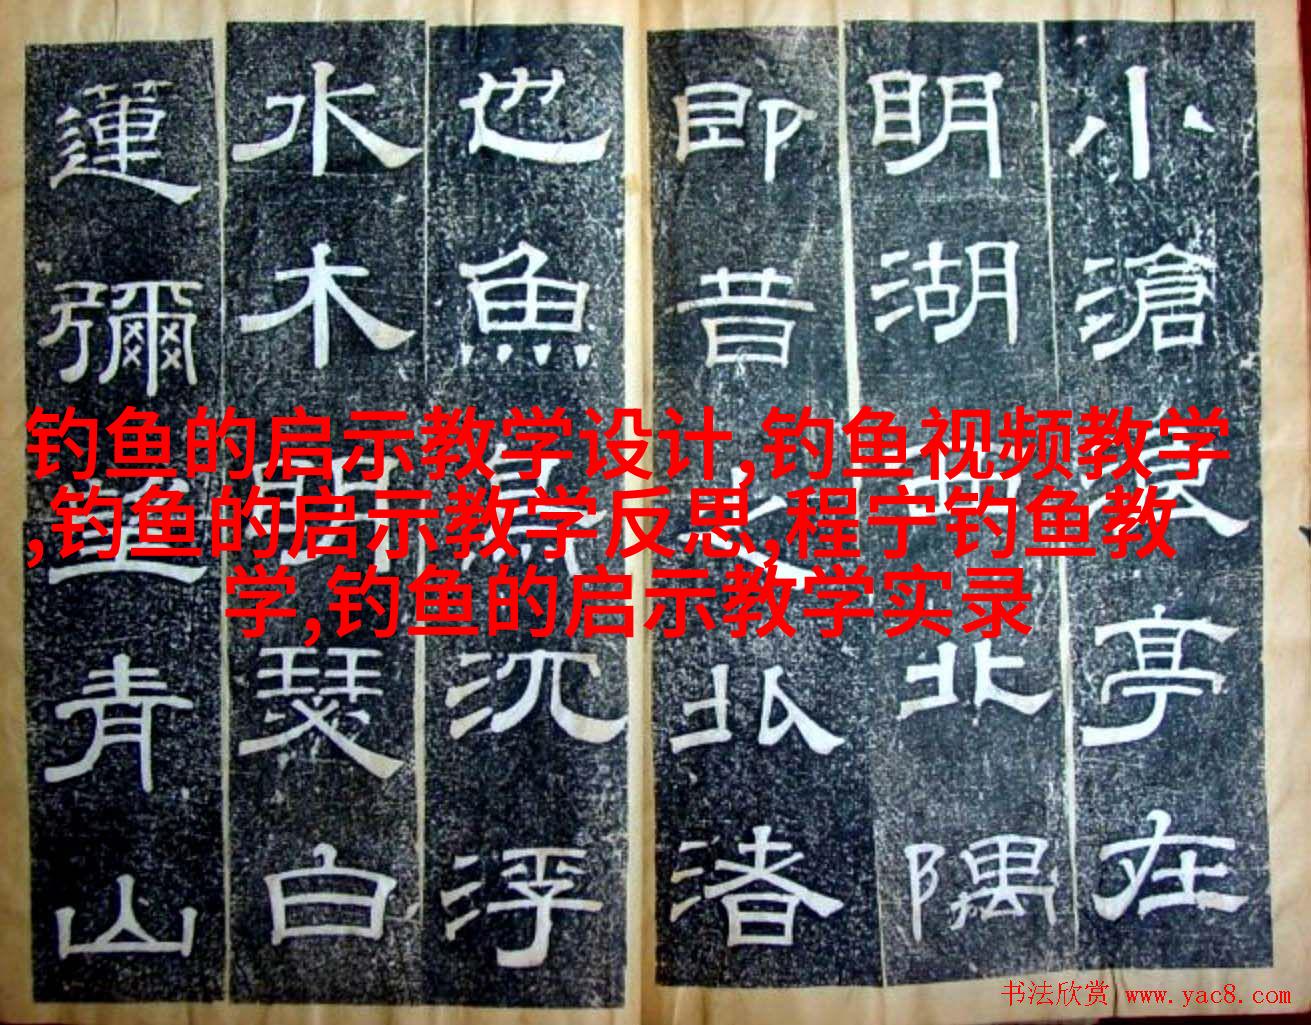 小滄浪亭在
明湖西北隅
即昔之北渚
也魚鳥沉浮
水木明瑟白
蓮彌望青山
钓鱼的启示教学设计,钓鱼视频教学
,钓鱼的启示教学反思,程宁钓鱼教
学,钓鱼的启示教学实录
书法欣赏 www.yac8.com